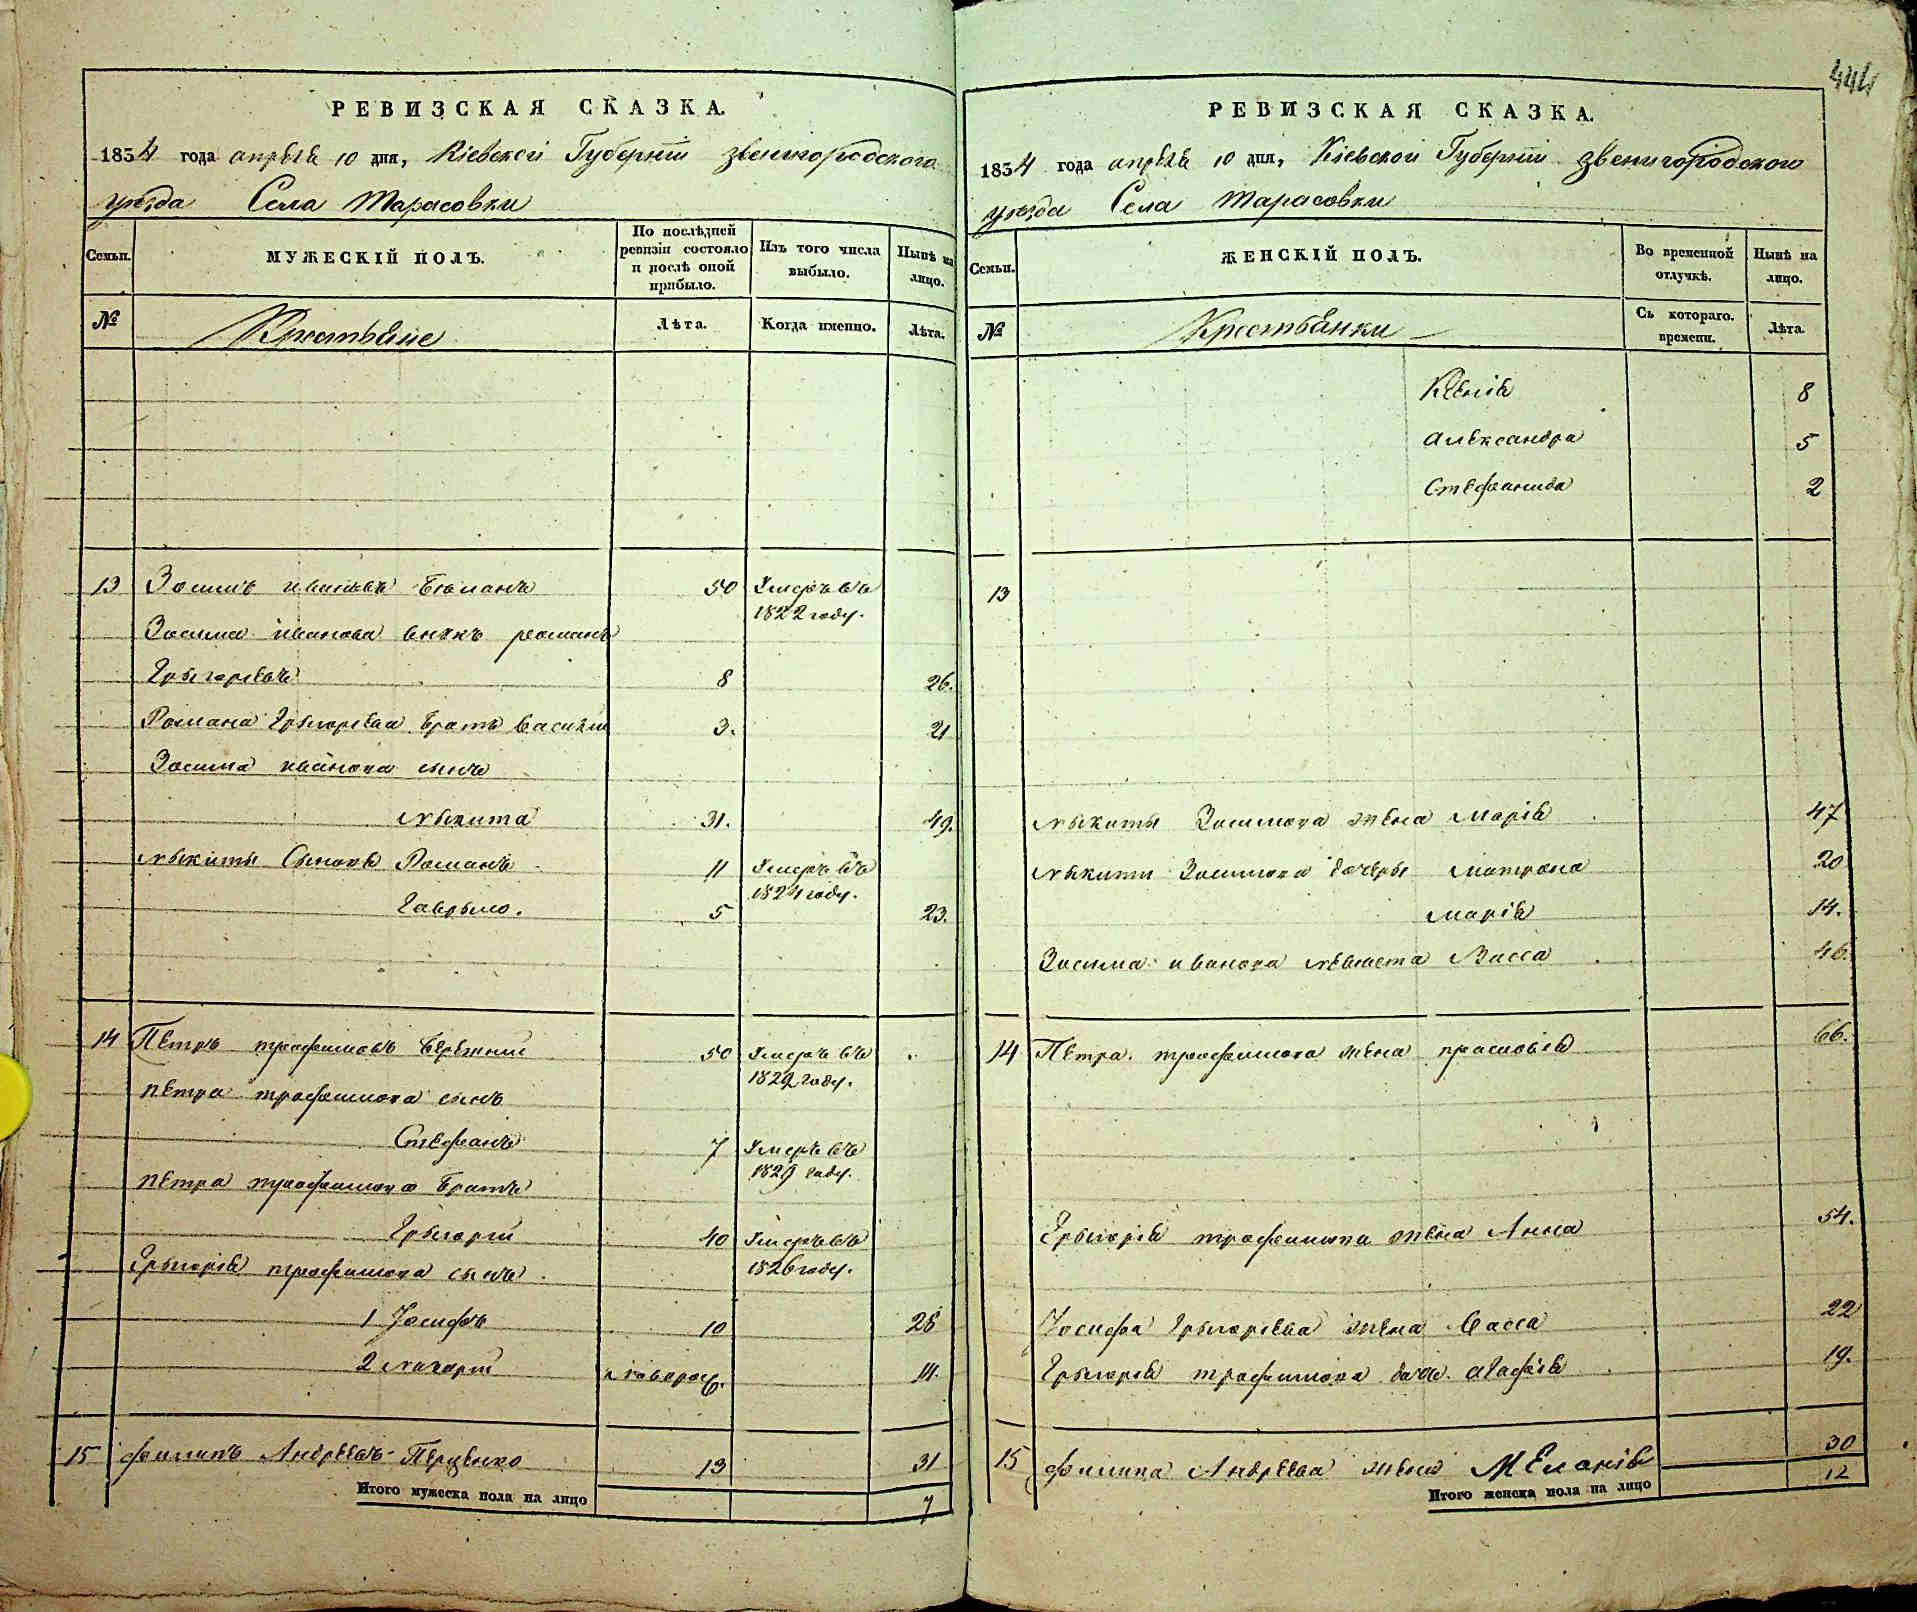 444
РЕВИЗСКАЯ СКАЗКА.
1834 года апреля 10 дня, Кіевской Губерніи звенигородского
уезда Села Тарасовки
Семьи.
МУЖЕСКІЙ ПОЛЪ.
По послѣдней ревизіи состояло и послѣ оной прибыло.
Изъ того числа выбыло.
Нынѣ на лицо.
№
Крестьяне
Лѣта.
Когда именно.
Лѣта.
13 Зосимъ ивановъ 50 Умеръ въ
1822 году.
Зосима иванова внукъ романъ
Грыгорьевъ 8 26.
Романа Грыгорьева братъ василий 3. 21
Зосима иванова сынъ
Мыкита 31. 49.
Мыкиты Сыновя Романъ 11 Умеръ въ
1824 году.
Гаврыло. 5 23.
14 Петръ трофимовъ бережний 50 Умеръ въ
1829 году.
Петра трофимова сынъ
Стефанъ 7 Умеръ въ
1829 году.
Петра трофимова братъ
Грыгорій 40 Умеръ въ
1826 году.
Грыгорія трофимова сынъ
1 Іосифъ 10 28
2 Макарій новорож. 14.
15 Филипъ Андреевъ Перценко 13 31
Итого мужеска пола на лицо 7
РЕВИЗСКАЯ СКАЗКА.
1834 года апреля 10 дня, Кіевской Губерніи звенигородского
уезда Села Тарасовки
Семьи.
ЖЕНСКІЙ ПОЛЪ.
Во временной отлучкѣ.
Нынѣ на лицо.
№
Крестьянки
Съ котораго. времени.
Лѣта.
Ксенія 8
Александра 5
Стефанида 2
13
Мыкиты Зосимова жена Марія 47
Мыкиты Зосимова дочеры Матрона 20
Марія 14.
Зосима иванова невѣста Васса 46.
14 Петра трофимова жена прасковія 66.
Грыгорія трофимова жена Анна 54.
Іосифа Грыгорьева жена Васса 22
Грыгорія трофимова дочь агафія 19.
15 Филипа Андреева жена Меланія 30
Итого женска пола на лицо 12